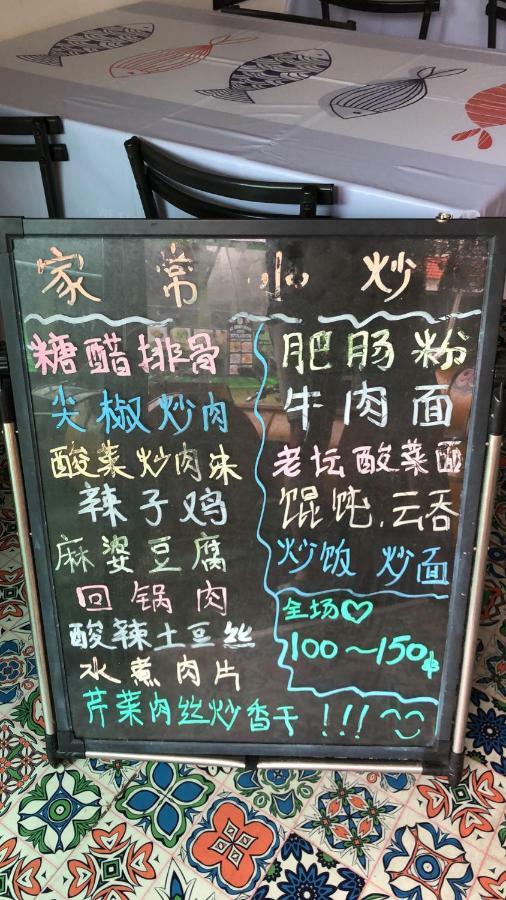 家常小炒
糖醋排骨
尖椒炒肉
酸菜炒肉沫
辣子鸡
麻婆豆腐
回锅肉
酸辣土豆丝
水煮肉片
芹菜肉丝炒香干!!!
肥肠粉
牛肉面
老坛酸菜面
馄饨.云吞
炒饭 炒面
全场♡
100~150